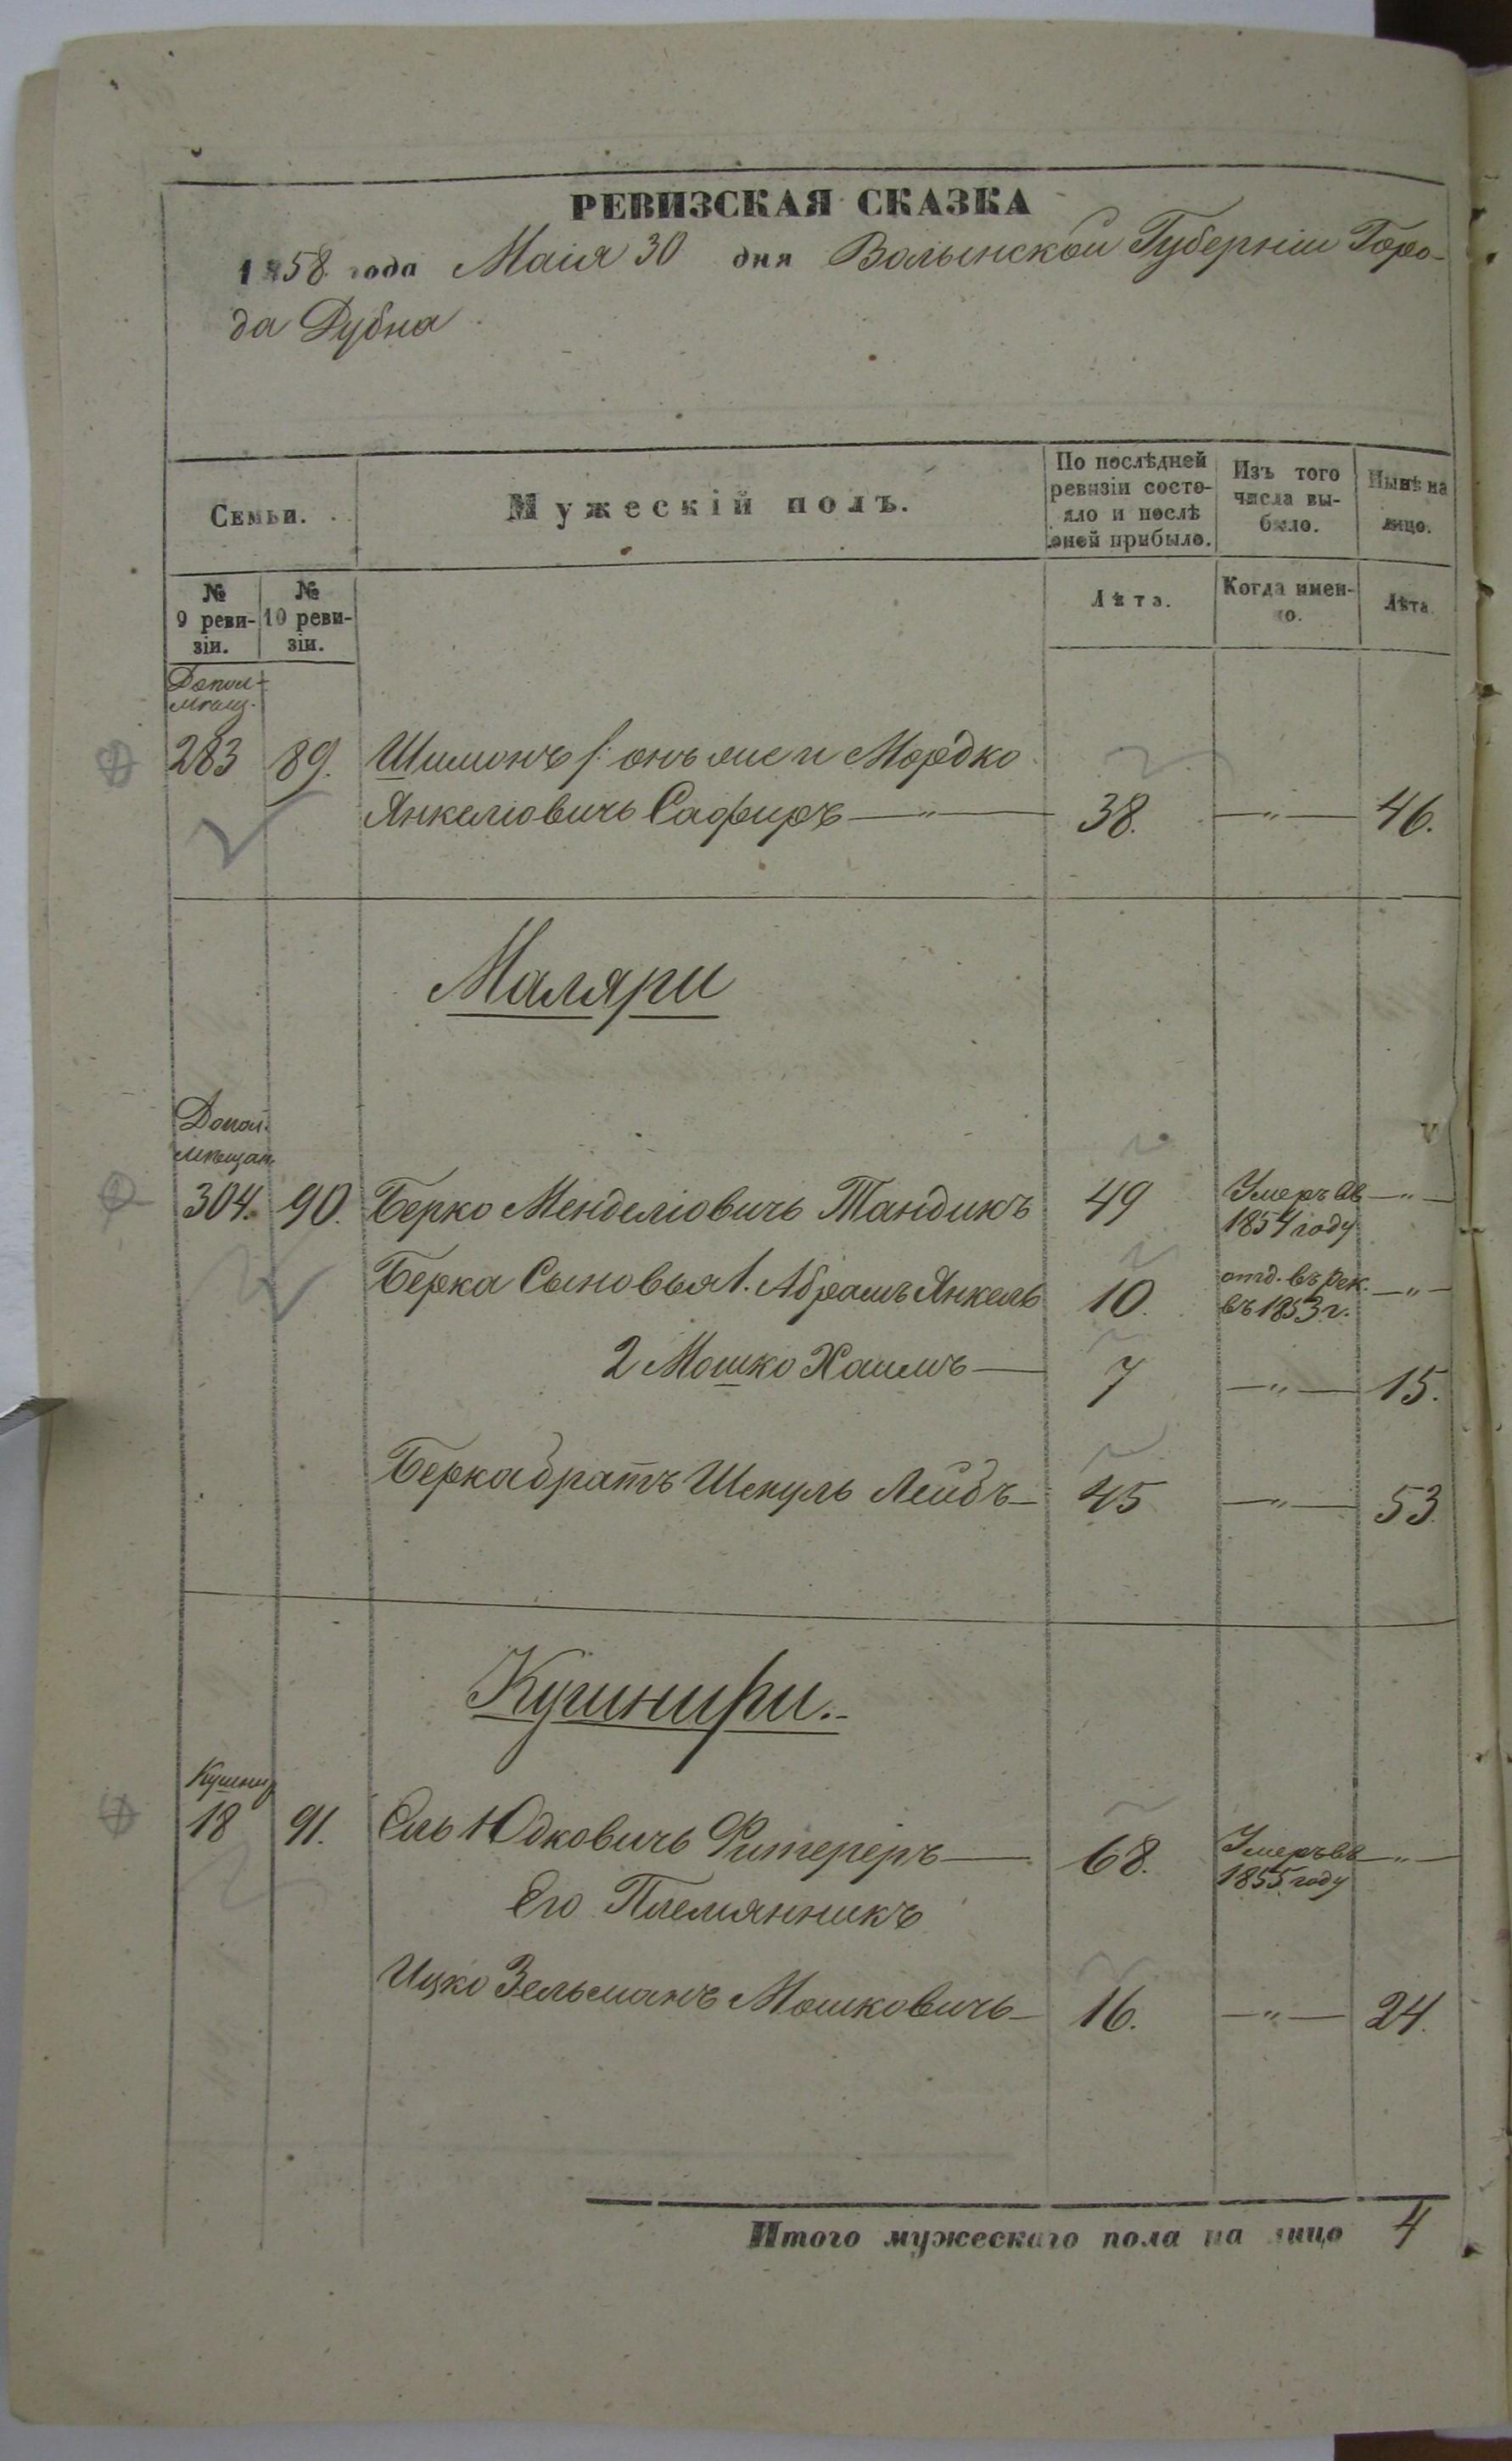 РЕВИЗСКАЯ СКАЗКА
1858 года Маія 30 дня Волынской Губерніи Горо-
да Дубна
Семьи.
Мужескій полъ.
По послѣдней
ревизіи состо-
яло и послѣ
оней прибыло.
Изъ того
числа вы-
было.
Нынѣ на
лицо.
№
9 реви-
зіи.
№
10 реви-
зіи.
Лѣта.
Когда имен-
но.
Лѣта
283 89. Шимонъ /: онъ же и Мордко
Янкеліовичь Сафиръ —"— 38. —"— 46.
Маляри
Допол.
мѣщан.
304. 90. Берко Менделіовичь Тандикъ 49 Умеръ въ —"—
1854 году
Берка Сыновья 1. Абрамъ Янкель 10. отд. въ рек. —"—
въ 1853 г.
2 Мошко Хаимъ — 7 —"— 15.
Берка братъ Шекуль Лейбъ — 45 —"— 53.
Кушнири.
Кушнир
18 91. Ель Юдковичь Фитереръ — 68. Умеръ въ —"—
1855 году
Его Племянникъ
Ицко Зельманъ Мошковичь — 16. —"— 24.
Итого мужескаго пола на лицо 4